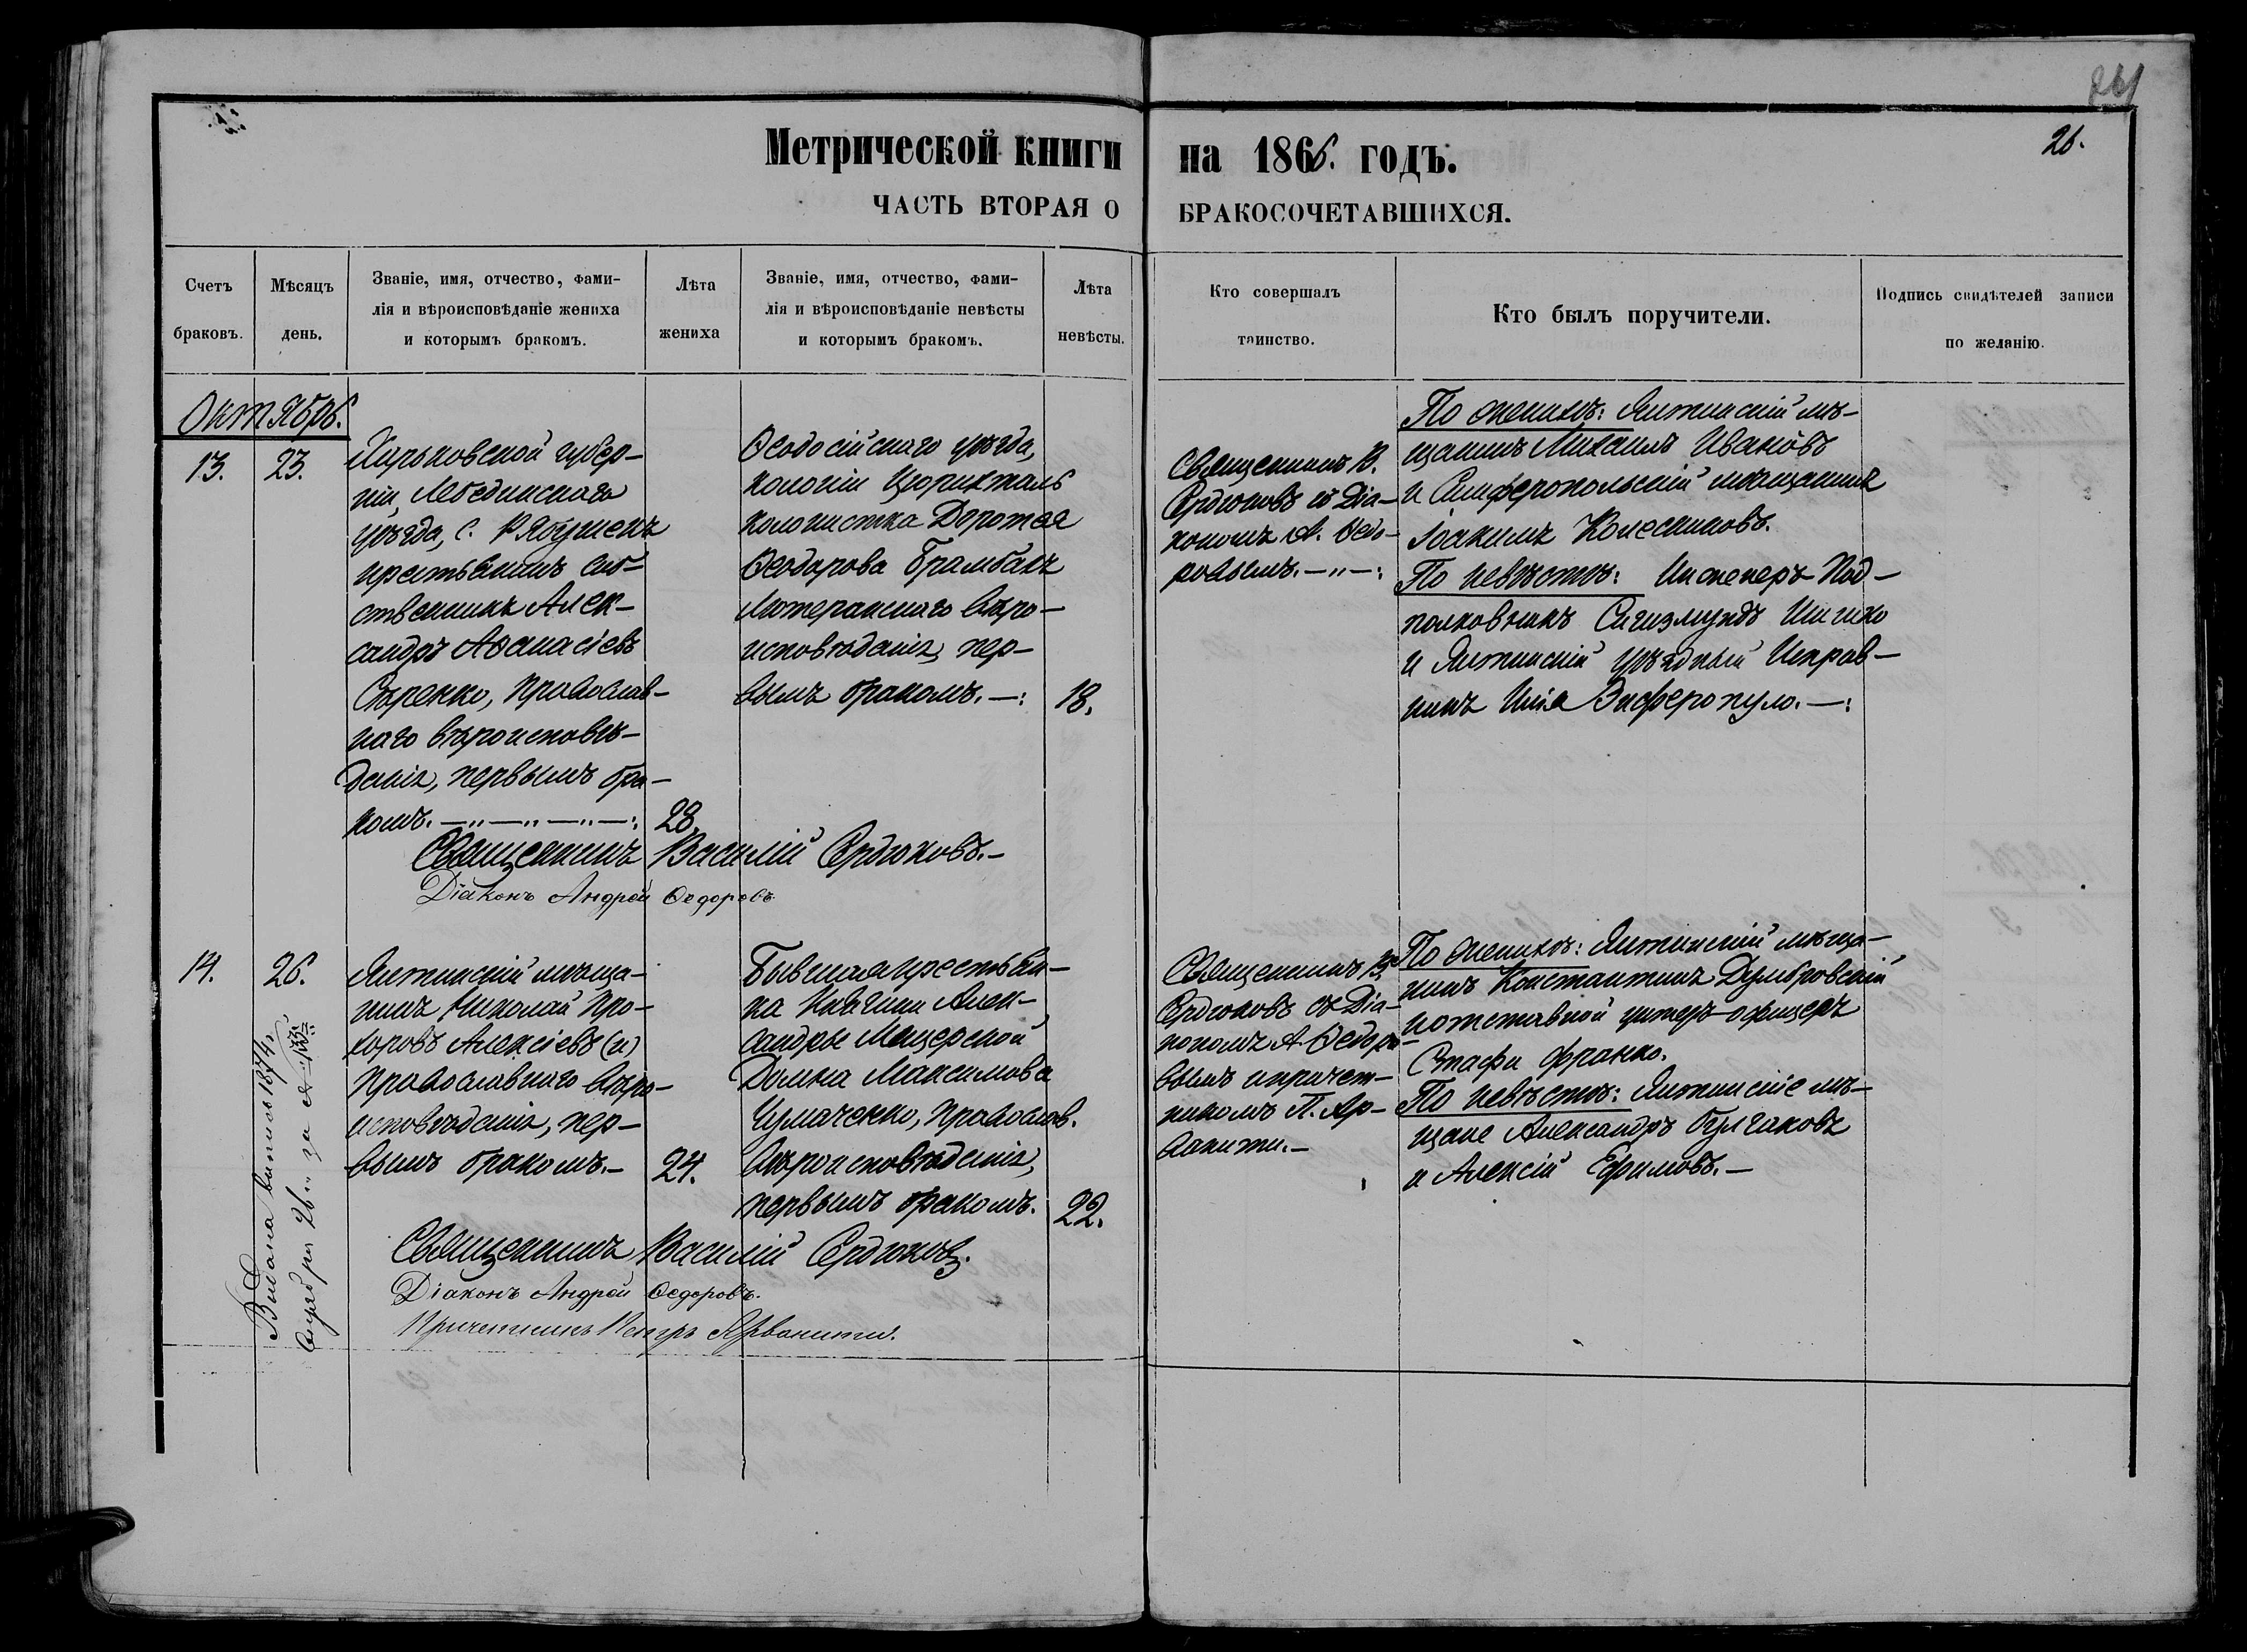 26.
Метрической книги на 1866. годъ.
ЧАСТЬ ВТОРАЯ О БРАКОСОЧЕТАВШИХСЯ.
Счетъ
браковъ.
Мѣсяцъ
день.
Званіе, имя, отчество, фами-
лія и вѣроисповѣданіе жениха
и которымъ бракомъ.
Лѣта
жениха
Званіе, имя, отчество, фами-
лія и вѣроисповѣданіе невѣсты
и которымъ бракомъ.
Лѣта
невѣсты.
Кто совершалъ
таинство.
Кто былъ поручители.
Подпись свидѣтелей записи
по желанію.
Октябрь.
13.
23.
Харьковской губер-
ніи, Лебединскаго
уѣзда, с. Рябушекъ
крестьянинъ соб-
ственникъ Алек-
сандръ Аѳанасіевъ
Сѣренко, православ-
наго вѣроисповѣ-
данія, первымъ бра-
комъ. —"—"—"—:
28.
Ѳеодосійскаго уѣзда,
колоніи Цюрихталь
колонистка Доротея
Ѳеодорова Брамбахъ
Лютеранскаго вѣро-
исповѣданія, пер-
вымъ бракомъ. —:
18.
Священникъ В.
Сердюковъ съ Діа-
кономъ А. Ѳедо-
ровымъ. —"—:
По женихѣ: Ялтинскій мѣ-
щанинъ Михаилъ Ивановъ
и Симферопольскій мѣщанинъ
Іоакимъ Колесниковъ.
По невѣстѣ: Инженеръ-Под-
полковникъ Сигизмундъ Шишко
и Ялтинскій уѣздный Исправ-
никъ Илія Зефиропуло. —:
Священникъ Василій Сердюковъ. —
Діаконъ Андрей Ѳедоровъ
14.
26.
Ялтинскій мѣща-
нинъ Николай Про-
хоровъ Алексіевъ (и)
православнаго вѣро-
исповѣданія, пер-
вымъ бракомъ. —
24.
Бывшая крестьян-
ка Княгини Алек-
сандры Мещерской
Домна Максимова
Чумаченко, православ.
вѣроисповѣданія,
первымъ бракомъ.
22.
Священникъ В.
Сердюковъ съ Діа-
кономъ А. Ѳедоро-
вымъ и причет-
никомъ П. Ар-
ванити. —
По женихѣ: Ялтинскій мѣща-
нинъ Константинъ Думбровскій
и отставной унтеръ-офицеръ
Стафи Франко.
По невѣстѣ: Ялтинскіе мѣ-
щане Александръ Булгаковъ
и Алексій Ефимовъ. —
Священникъ Василій Сердюковъ.
Діаконъ Андрей Ѳедоровъ.
Причетникъ Петръ Арванити.
Выдана выпись 1874 г.
26 за №